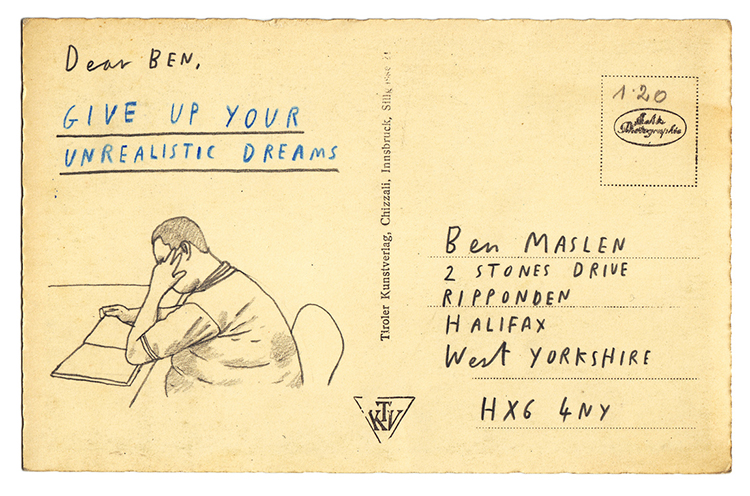 Dear BEN,
GIVE UP YOUR
UNREALISTIC DREAMS
Tiroler Kunstverlag, Chizzali, Innsbruck,
KTV
1.20
Echte
Photographie
Ben MASLEN
2 STONES DRIVE
RIPPONDEN
HALIFAX
West YORKSHIRE
HX6 4NY